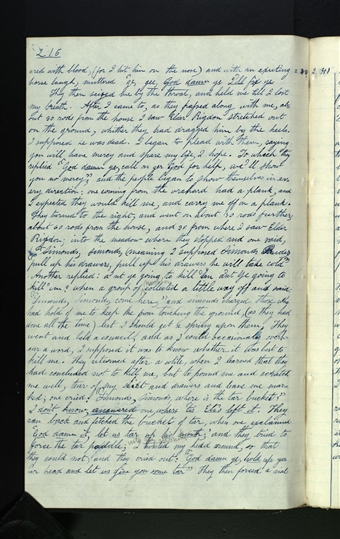 216
ered with blood, (for I hit him on the nose) and with an exulting
horse laugh, muttered ge, gee, God damn ye I'll fix ye
They then seized me by the throat, and held me till I lost
my breath. After I came to, as they passed along with me, about
30 rods from the house I saw Elder Rigdon stretched out
on the ground, whither they had dragged him by the heels.
I supposed he was dead. I began to plead with them, saying
you will have mercy and spare my life, I hope. To which they
replied "God damn ye, call on yer God for help, we'll show
you no mercy" and the people began to show themselves in ev-
ery direction; one coming from the orchard had a plank, and
I expected they would kill me, and carry me off on a plank.
They turned to the right, and went on about 30 rods further,
about 60 rods from the house, and 30 from where I saw Elder
Rigdon; into the meadow where they stopped and one said,
"Simonds, Simonds, (meaning I supposed Simonds Rider)
pull up his drawers, pull up his drawers he will take cold."
Another replied: a'nt ye going to kill 'im, ant ye going to
kill 'im? when a group of collected a little way off and said
"Simonds, Simonds, come here;" and Simonds charged those who
had hold of me to keep me from touching the ground (as they had
done all the time) lest I should get a spring upon them. They
went and held a council, and as I could occasionally over-
hear a word, I supposed it was to know whether it was best to
kill me. They returned after a while, when I learned that they
had concluded not to kill me, but to pound me and scratch
me well, tear off my shirt and drawers and leave me naked.
One cried "Simonds, Simonds, where is the tar bucket?"
"I don't know," answered one, where 'tis Eli's left it. They
ran back and fetched the bucket of tar, when one exclaimed
"God damn it, let us tar up his mouth;" and they tried to
force the tar paddle I twisted my head around, so that
they could not; and they cried out: "God damn ye, hold up yer
head and let us give you some tar." They then forced a vial